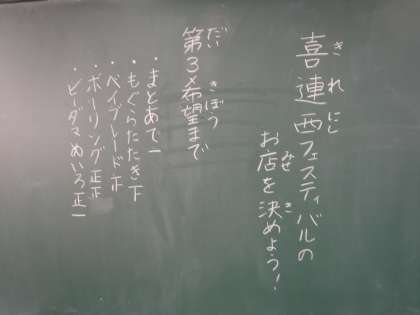 きれにし
喜連西フェスティバルの
みせ き
お店を決めよう!
だい きぼう
第3希望まで
・まとあて一
・もぐらたたき下
・ベイブレード
・ボーリング正正
・ビーダマめいろ正一